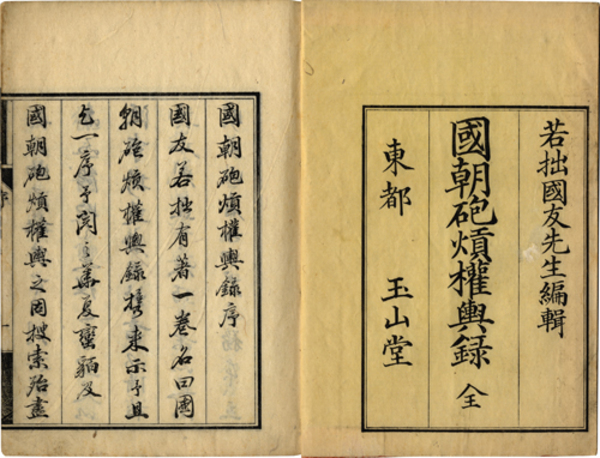 若拙國友先生編輯
國朝砲熕權輿録 全
東都 玉山堂
國朝砲熕權輿録序
國友若拙有著一卷名曰國
朝砲熕權輿録携来示予且
乞一序予閲之華夏蠻貊及
國朝砲熕權輿之因搜索殆盡